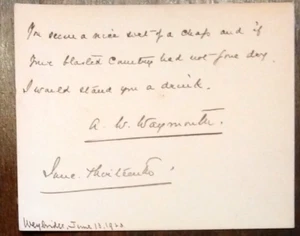 You seem a nice sort of a chap and if
Your blasted Country had not gone dry
I would stand you a drink.
A. W. Waymouth.
Weybridge, June 18, 1922